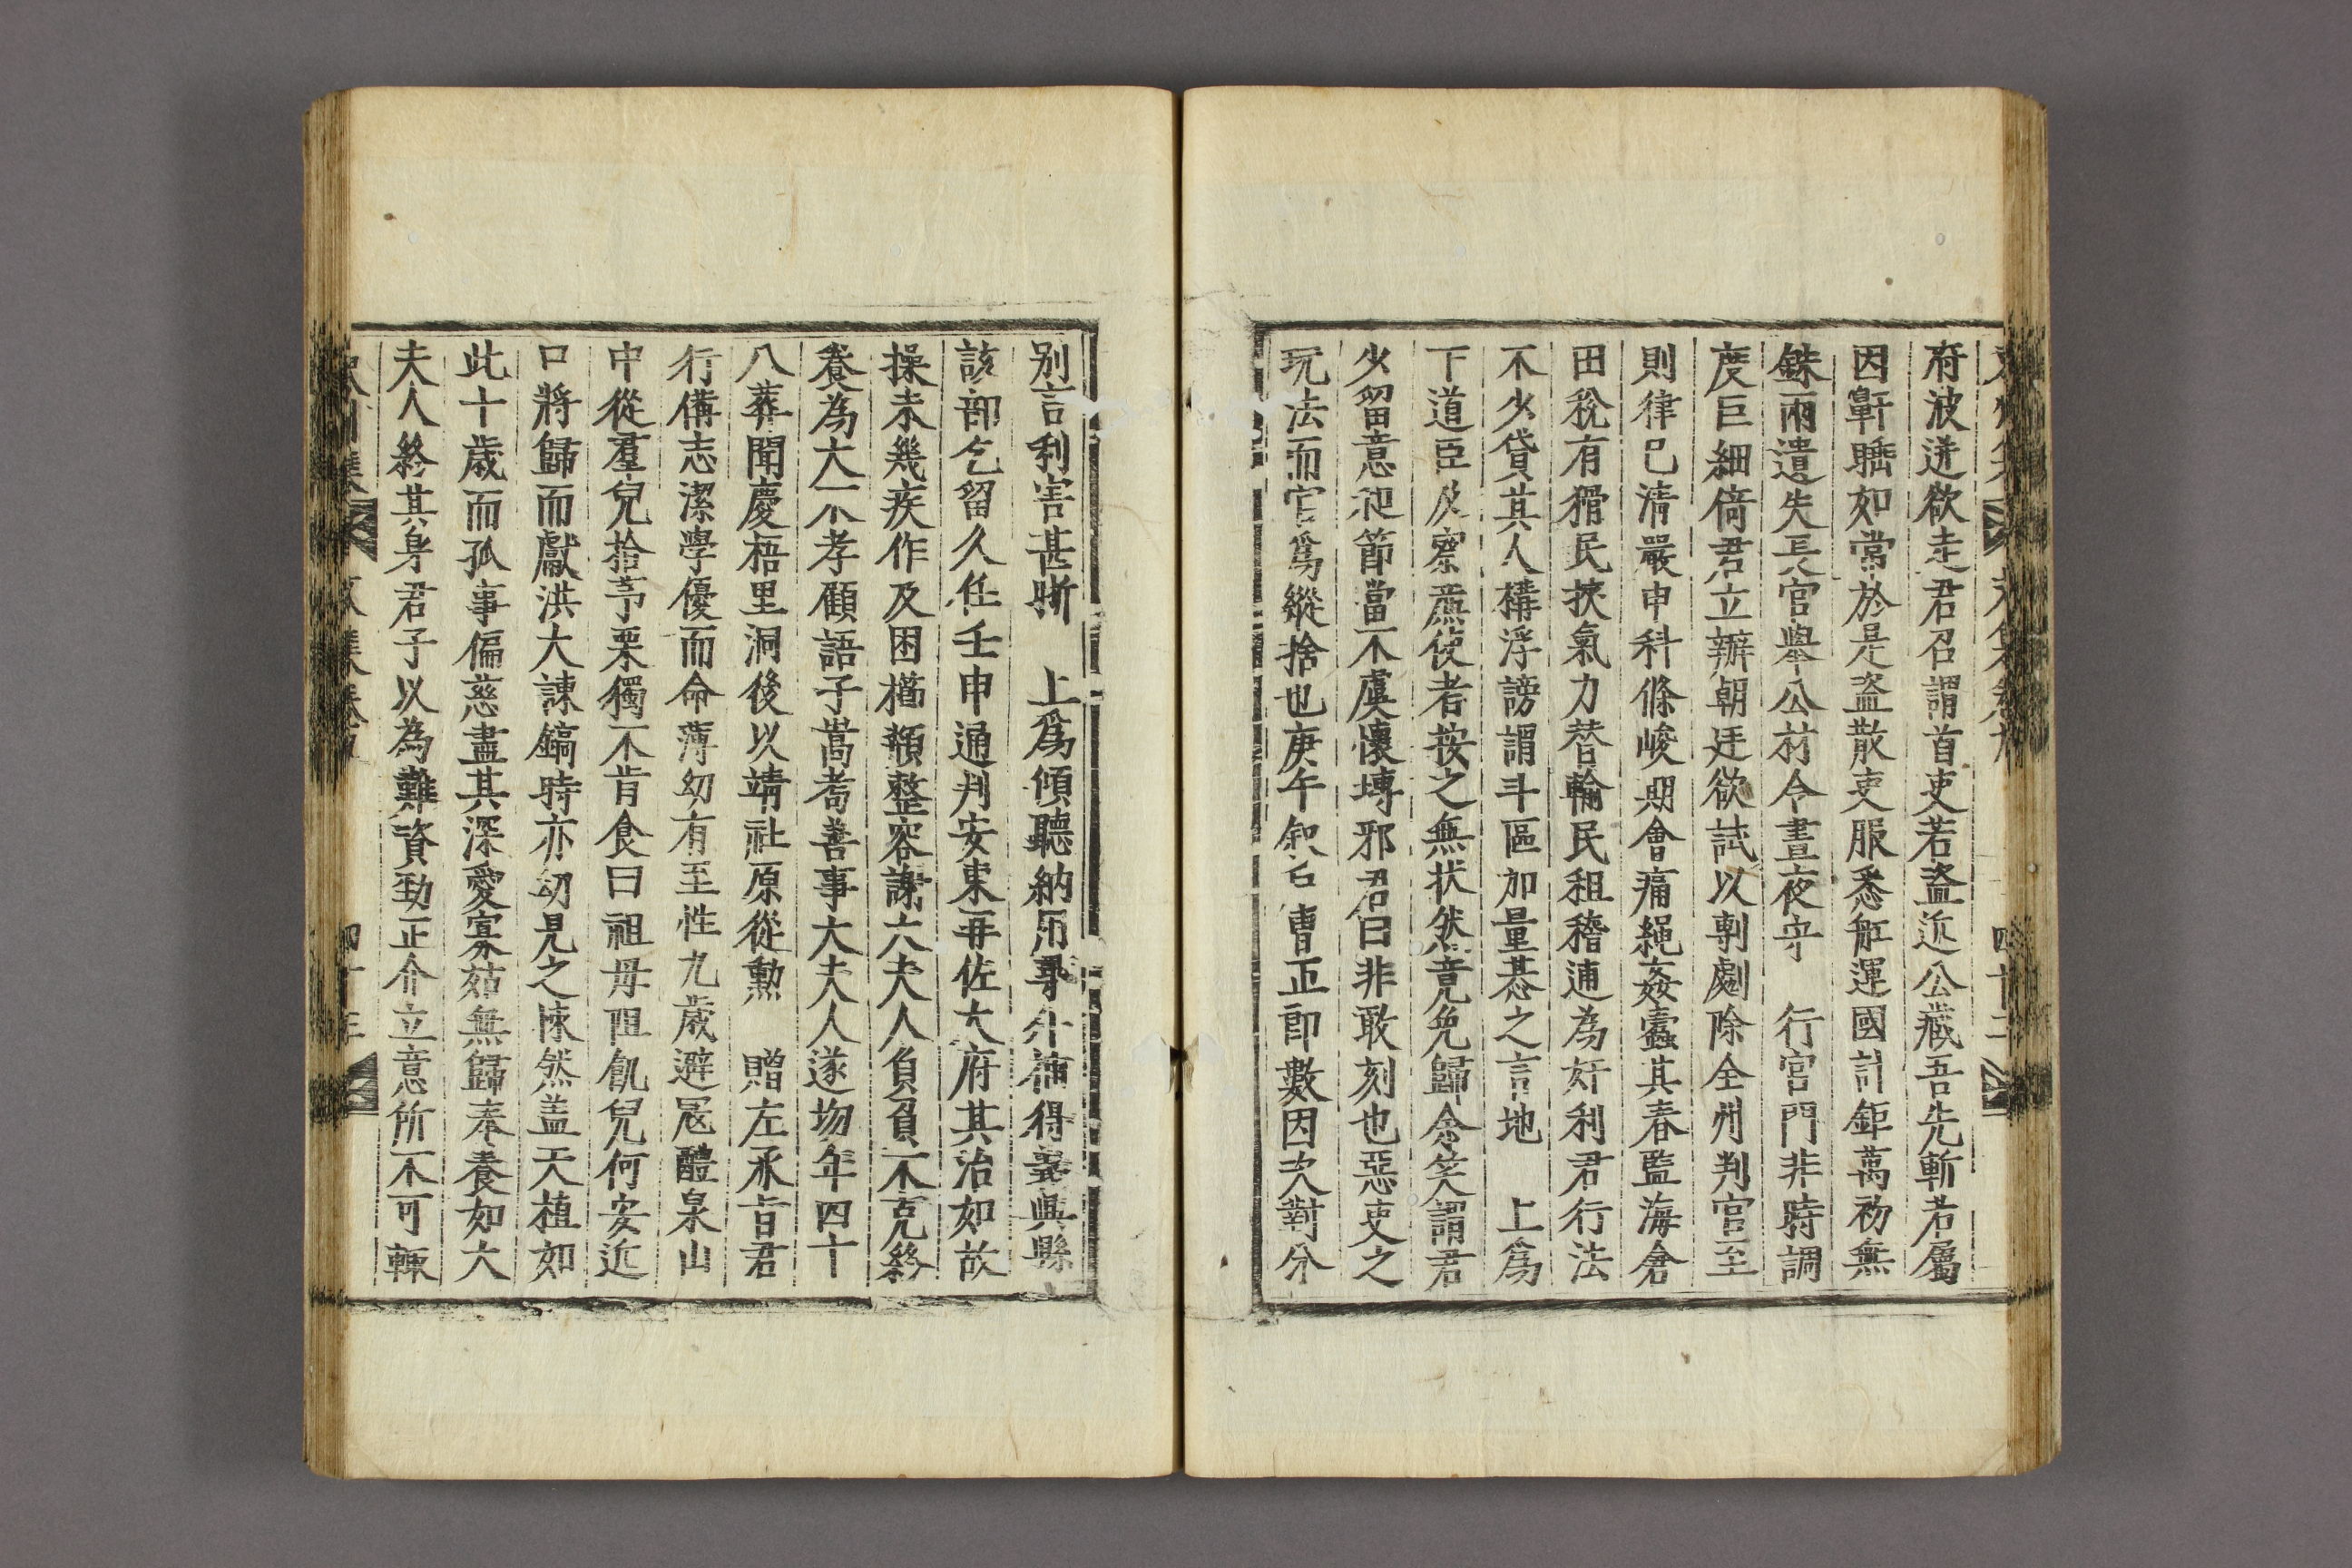 府波迸欲走君召謂首吏若盜近公藏吾先斬若屬
因鼾睡如常於是盜散吏服悉舡運國計鉅萬初無
銖兩遺失長官舉公材令晝夜守　行宮門非時調
度巨細倚君立辦朝廷欲試以剸劇除全州判官至
則律已清嚴申科條峻期會痛繩姦蠹其春監海倉
田稅有猾民挾氣力替輸民租稽逋為奸利君行法
不少貸其人構浮謗謂斗區加量惎之言地　上爲
下道臣及察廉使者按之無狀然竟免歸余笑謂君
少留意起節當不虞懷塼邪君曰非敢刻也惡吏之
玩法而官爲縱捨也庚午叙若曹正郎數因次對分
別言利害甚晣　上爲傾聽納用尋外補得義興縣
該部乞留久任壬申通判安東再佐大府其治如故
操未幾疾作及困櫛頮整容謝六夫人負負不克終
養為大不孝顧語子嵩耉善事大夫人遂歾年四十
八葬聞慶梧里洞後以靖社原從勲　贈左承旨君
行備志潔學優而命薄幼有至性九歲避寇醴泉山
中從羣兒拾芧栗獨不肯食曰祖母阻飢兒何安近
口將歸而獻洪大諫鎬時亦幼見之悚然盖天植如
此十歲而孤事偏慈盡其深愛寡姑無歸奉養如大
夫人終其身君子以為難資勁正介立意所不可輒